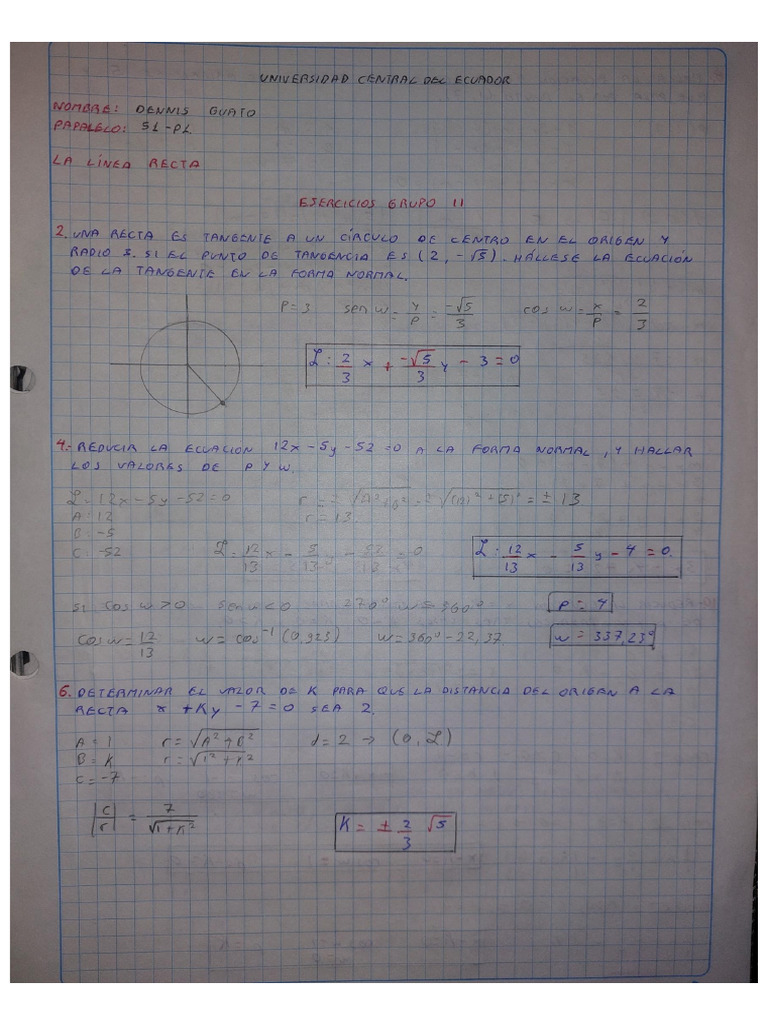 UNIVERSIDAD CENTRAL DEL ECUADOR
NOMBRE: DENNIS GUATO
PAPALELO: S1-P1
LA LÍNEA RECTA
EJERCICIOS GRUPO 11
2. UNA RECTA ES TANGENTE A UN CÍRCULO DE CENTRO EN EL ORIGEN Y
RADIO 3. SI EL PUNTO DE TANGENCIA ES (2, -√5). HÁLLESE LA ECUACIÓN
DE LA TANGENTE EN LA FORMA NORMAL.
P=3 sen w = y/P = -√5/3 cos w = x/P = 2/3
L: 2/3 x + -√5/3 y - 3 = 0
4. REDUCIR LA ECUACION 12x-5y-52=0 A LA FORMA NORMAL, Y HALLAR
LOS VALORES DE P Y W.
L=12x-5y-52=0 r=±√A²+B² = ±√(12)²+(5)² = ±13
A: 12 r=13
B: -5
C: -52 L: 12/13 x - 5/13 y - 52/13 = 0 L: 12/13 x - 5/13 y - 4 = 0.
si cos w>0 sen w<0 270° w = 360° P = 4
cos w = 12/13 w = cos⁻¹(0,923) w=360°-22,37 w = 337,23°
6. DETERMINAR EL VALOR DE K PARA QUE LA DISTANCIA DEL ORIGEN A LA
RECTA x +Ky -7=0 SEA 2.
A=1 r=√A²+B² d=2 → (0, L)
B=K r=√1²+K²
C=-7
|C/r| = 7/√1+K² K= ± 2/3 √5